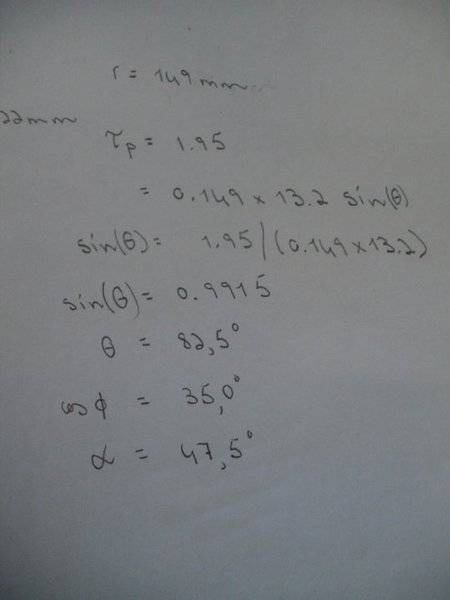 r = 149 mm
22mm
τp = 1.95
= 0.149 × 13.2 sin(θ)
sin(θ) = 1.95 / (0.149 × 13.2)
sin(θ) = 0.9915
θ = 82,5°
cos φ = 35,0°
α = 47,5°